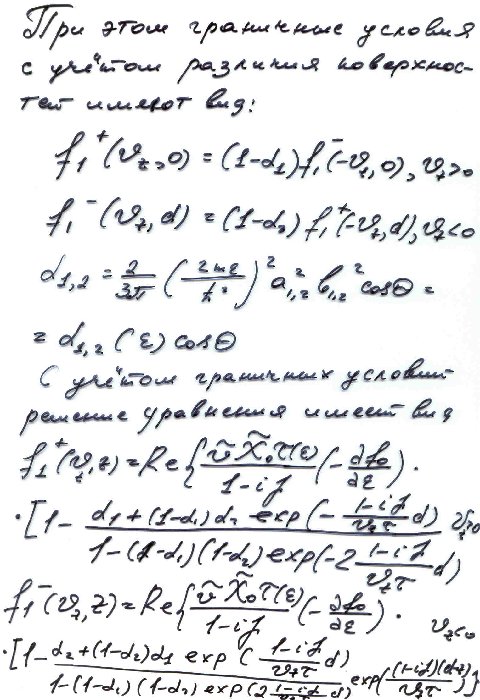 При этом граничные условия
с учётом различия поверхнос-
тей имеют вид:
f₁⁺(υ_z, 0) = (1-α₁)f₁⁻(-υ_z, 0), υ_z>0
f₁⁻(υ_z, d) = (1-α₂) f₁⁺(-υ_z, d), υ_z<0
α₁,₂ = 2/3π (2mε/ħ²)² a₁,₂² b₁,₂² cosΘ =
= α₁,₂ (ε) cosΘ
С учётом граничных условий
решение уравнения имеет вид
f₁⁺(υ_z, z) = Re{ υ̃ X̃₀τ(ε)/(1-iζ) (-∂f₀/∂ε) ·
· [1- (α₁+(1-α₁)α₂ exp(- (1-iζ)/(υ_zτ) d))/(1-(1-α₁)(1-α₂)exp(-2 (1-iζ)/(υ_zτ) d) υ_z>0
f₁⁻(υ_z, z) = Re{ υ̃ X̃₀τ(ε)/(1-iζ) (-∂f₀/∂ε) · υ_z<0
· [1- (α₂+(1-α₂)α₁ exp( (1-iζ)/(υ_zτ) d))/(1-(1-α₁)(1-α₂) exp(2 (1-iζ)/(υ_zτ) d) exp((1-iζ)(d-z)/(υ_zτ))